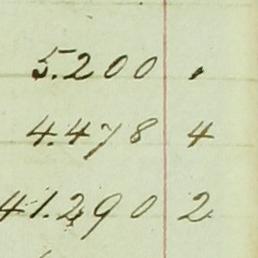 5.200 ,
4.478 4
41.290 2